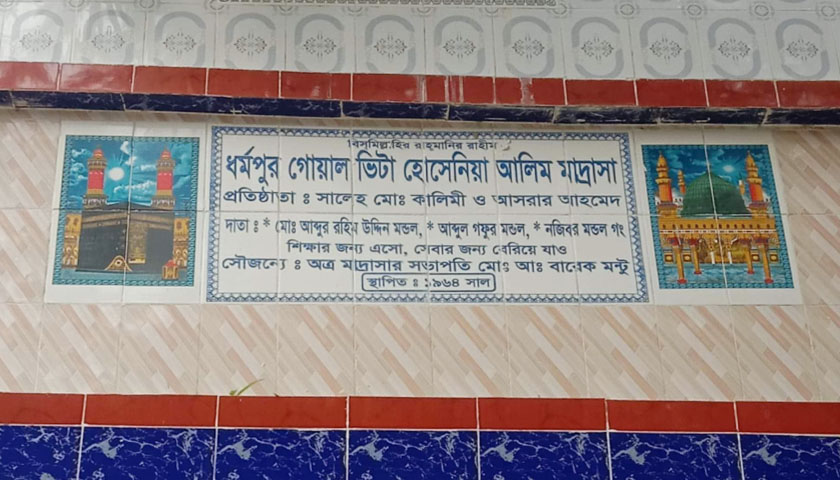 বিসমিল্লাহির রাহমানির রাহীম
ধর্মপুর গোয়াল ভিটা হোসেনিয়া আলিম মাদ্রাসা
প্রতিষ্ঠাতা : সালেহ মোঃ কালিমী ও আসরার আহমেদ
দাতা : * মোঃ আব্দুর রহিম উদ্দিন মন্ডল, * আব্দুল গফুর মন্ডল, * নজিবর মন্ডল গং
শিক্ষার জন্য এসো, সেবার জন্য বেরিয়ে যাও
সৌজন্যে : অত্র মাদ্রাসার সভাপতি মোঃ আঃ বারেক মন্টু
স্থাপিত : ১৯৬৪ সাল